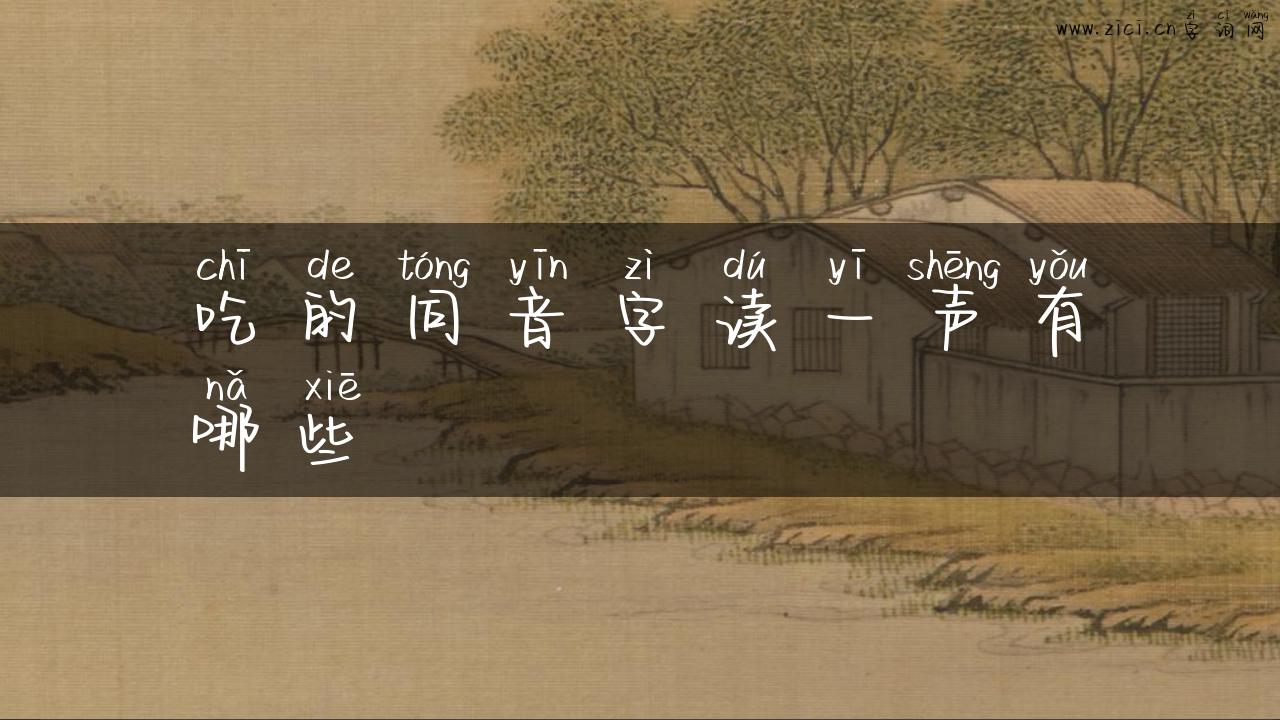 zì cí wǎng
www.zici.cn 字词网
chī de tóng yīn zì dú yī shēng yǒu
吃的同音字读一声有
nǎ xiē
哪些